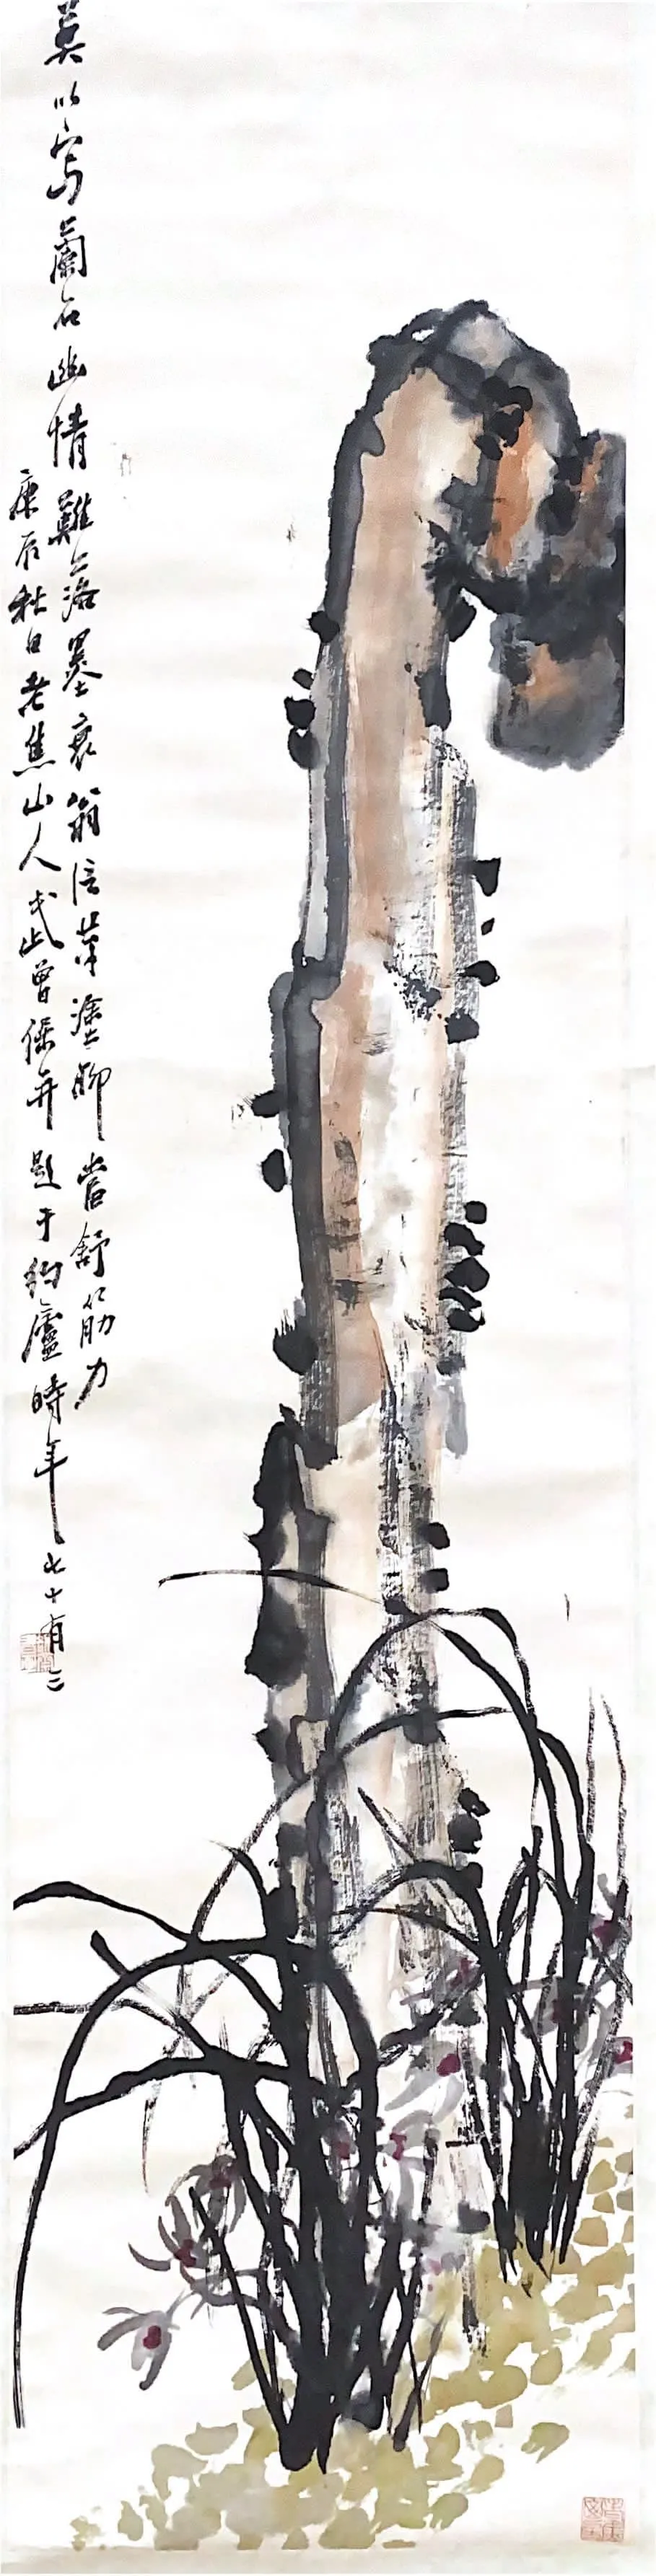 莫以寫蘭石幽情難落墨衰翁信筆塗聊當舒筋力
庚辰秋日老焦山人武曾保并題于約廬時年七十有三